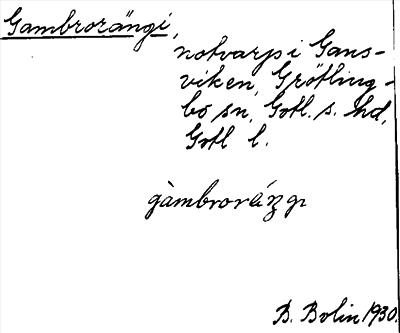 Gambrorängi,
notvarp i Gans-
viken, Grötling-
bo sn, Gotl. s. hd,
Gotl l.
B. Bolin 1930.